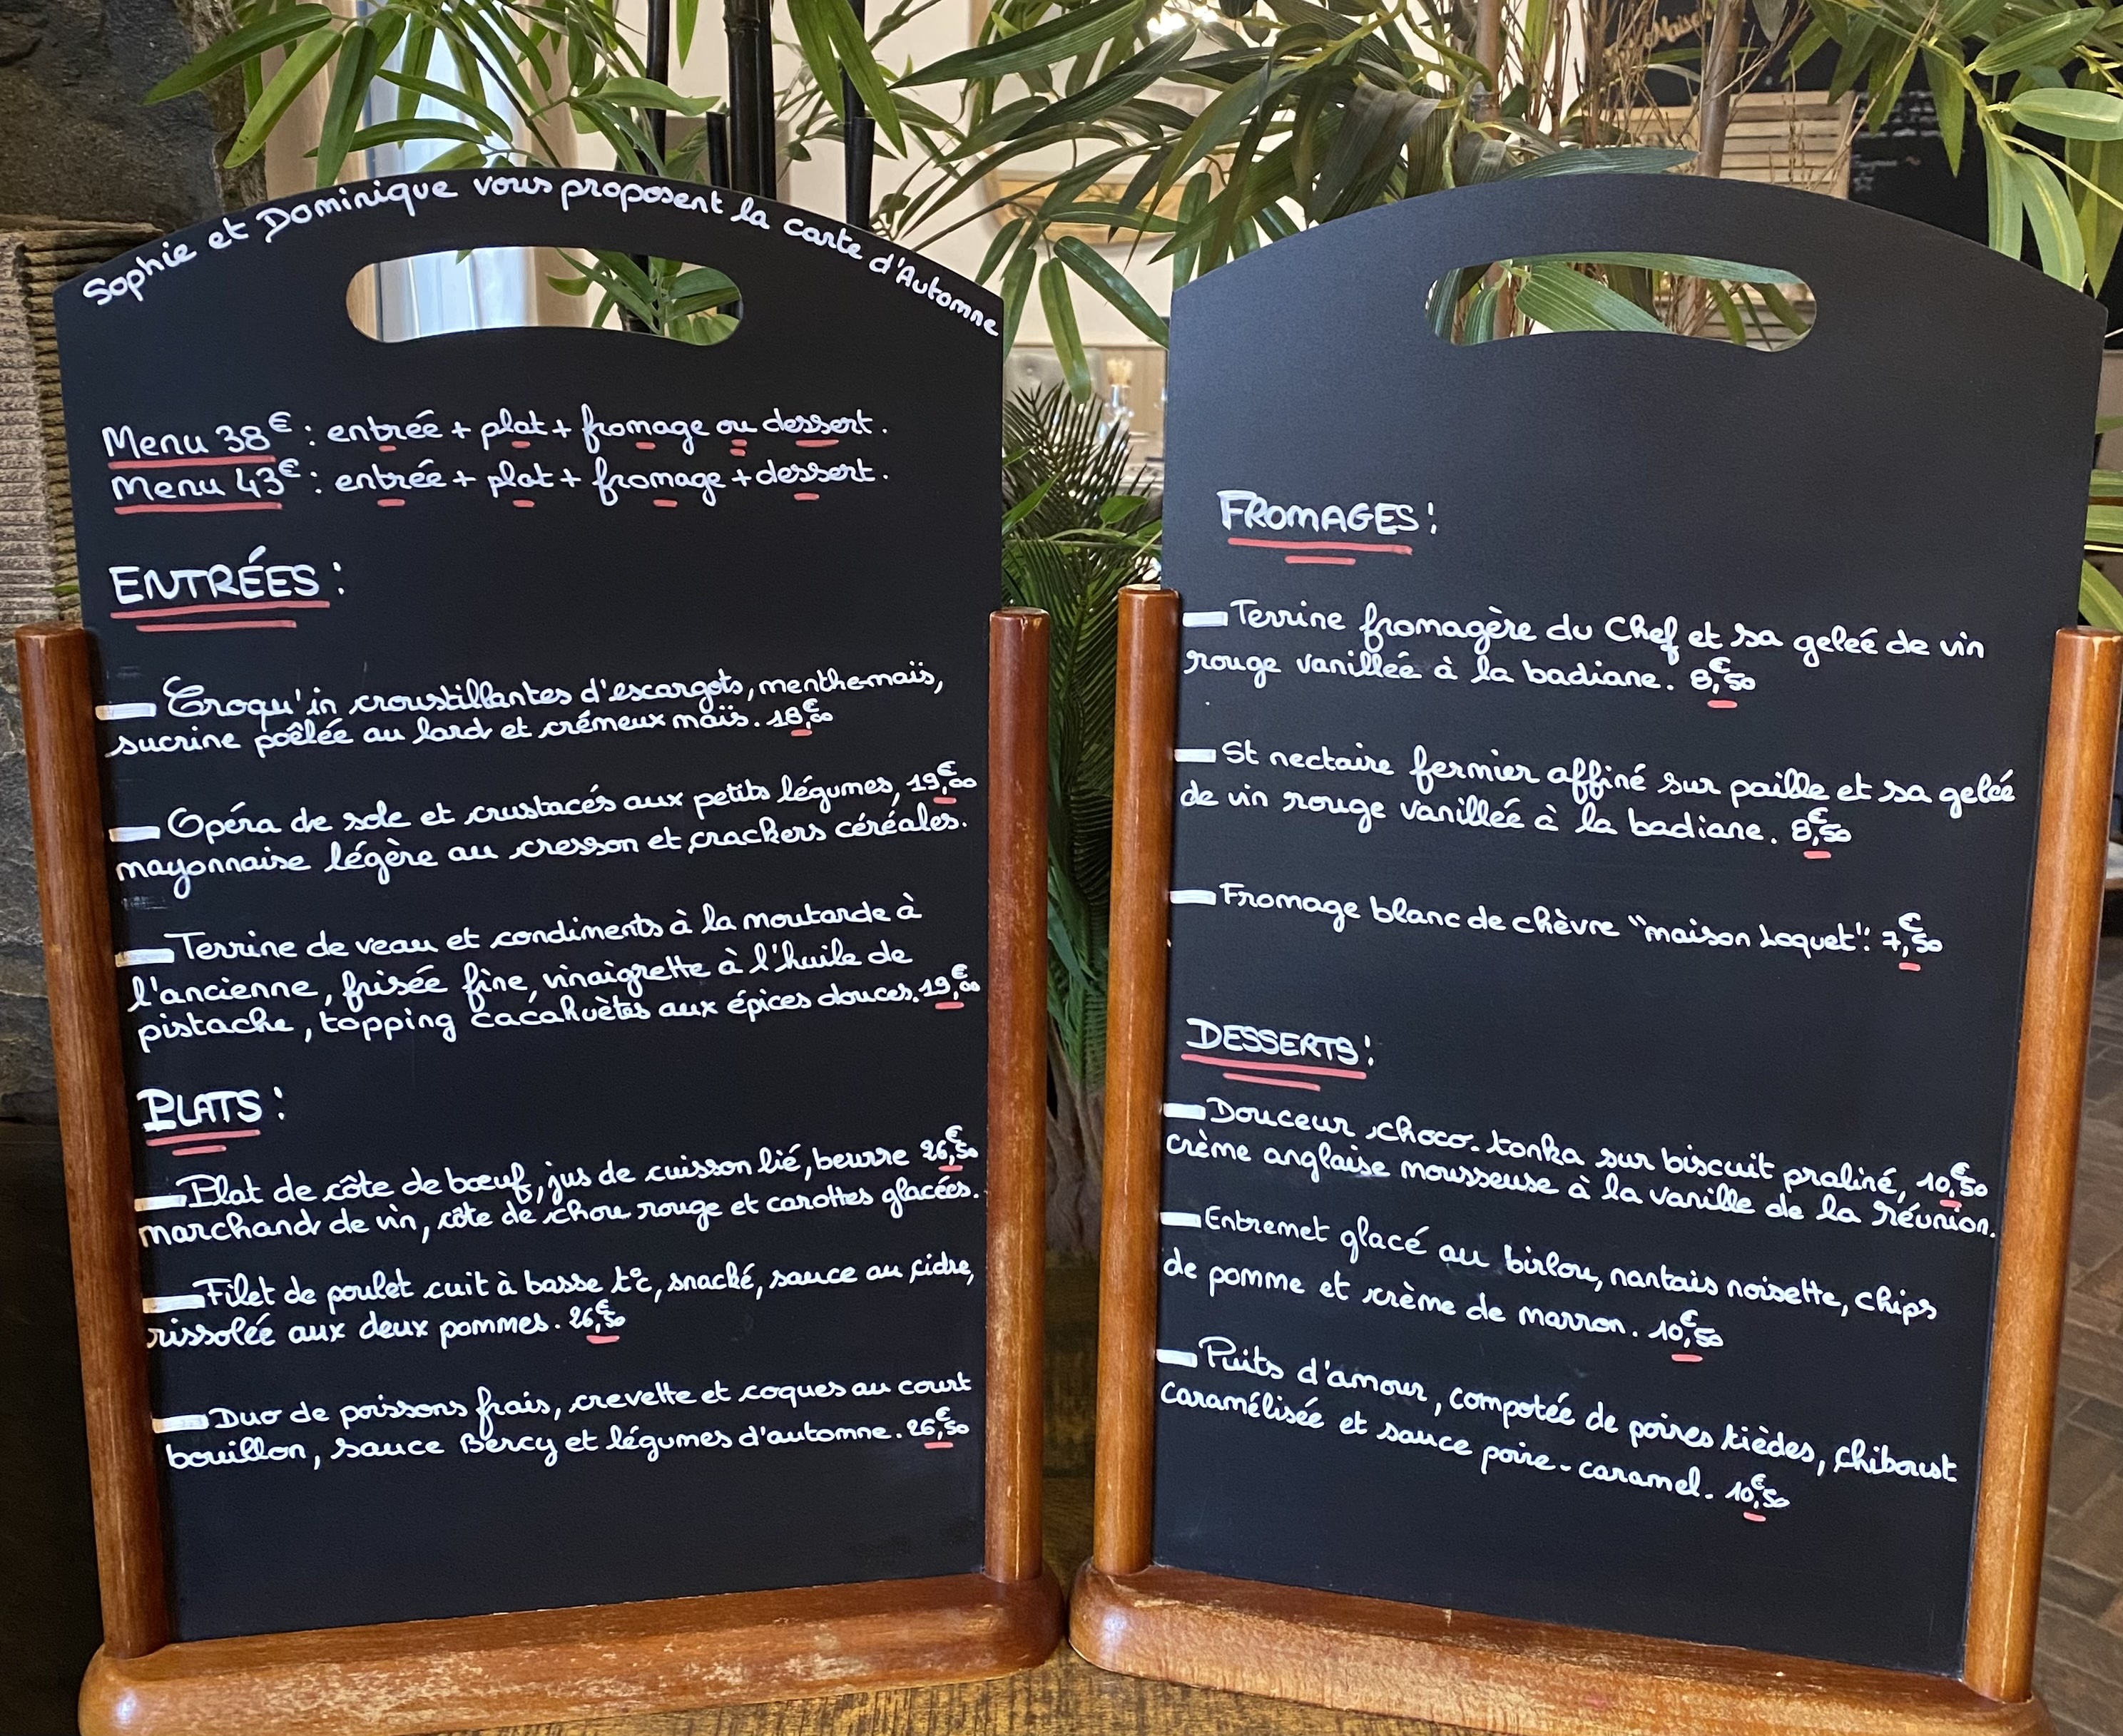 Sophie et Dominique vous proposent la carte d'Automne
Menu 38€ : entrée + plat + fromage ou dessert.
Menu 43€ : entrée + plat + fromage + dessert.
ENTRÉES :
Croqu'in croustillantes d'escargots, menthe-maïs,
sucrine poêlée au lard et crémeux maïs. 18,€00
Opéra de sole et crustacés aux petits légumes, 19,€00
mayonnaise légère au cresson et crackers céréales.
Terrine de veau et condiments à la moutarde à
l'ancienne, frisée fine, vinaigrette à l'huile de
pistache, topping cacahuètes aux épices douces. 19,€00
PLATS :
Plat de côte de bœuf, jus de cuisson lié, beurre 26,€50
marchand de vin, côte de chou rouge et carottes glacées.
Filet de poulet cuit à basse t°c, snacké, sauce au cidre,
rissolée aux deux pommes. 26,€50
Duo de poissons frais, crevette et coques au court
bouillon, sauce Bercy et légumes d'automne. 26,€50
FROMAGES :
Terrine fromagère du Chef et sa geleé de vin
rouge vanilleé à la badiane. 8,€50
St nectaire fermier affiné sur paille et sa geleé
de vin rouge vanilleé à la badiane. 8,€50
Fromage blanc de chèvre "maison Loquet". 7,€50
DESSERTS :
Douceur choco-tonka sur biscuit praliné, 10,€50
crème anglaise mousseuse à la vanille de la réunion.
Entremet glacé au birlou, nantais noisette, chips
de pomme et crème de marron. 10,€50
Puits d'amour, compotée de poires tièdes, chiboust
caramélisée et sauce poire-caramel. 10,€50